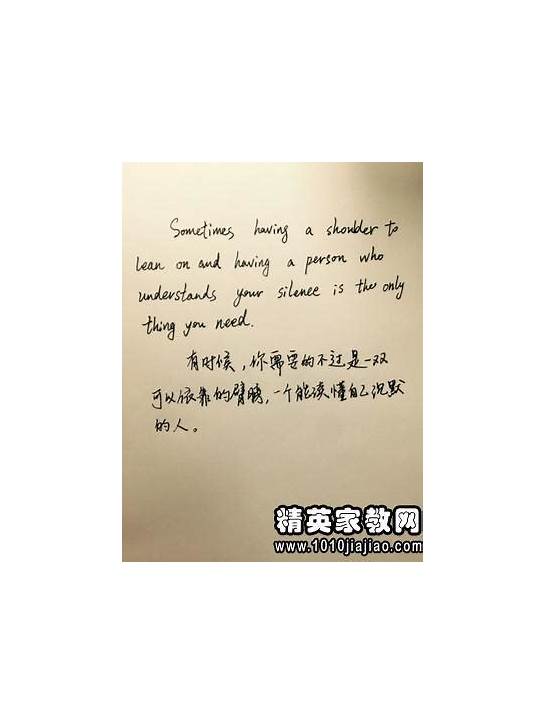 Sometimes having a shoulder to
lean on and having a person who
understands your silence is the only
thing you need.
有时候，你需要的不过是一双
可以依靠的臂膀，一个能读懂自己沉默
的人。
精英家教网
www.1010jiajiao.com